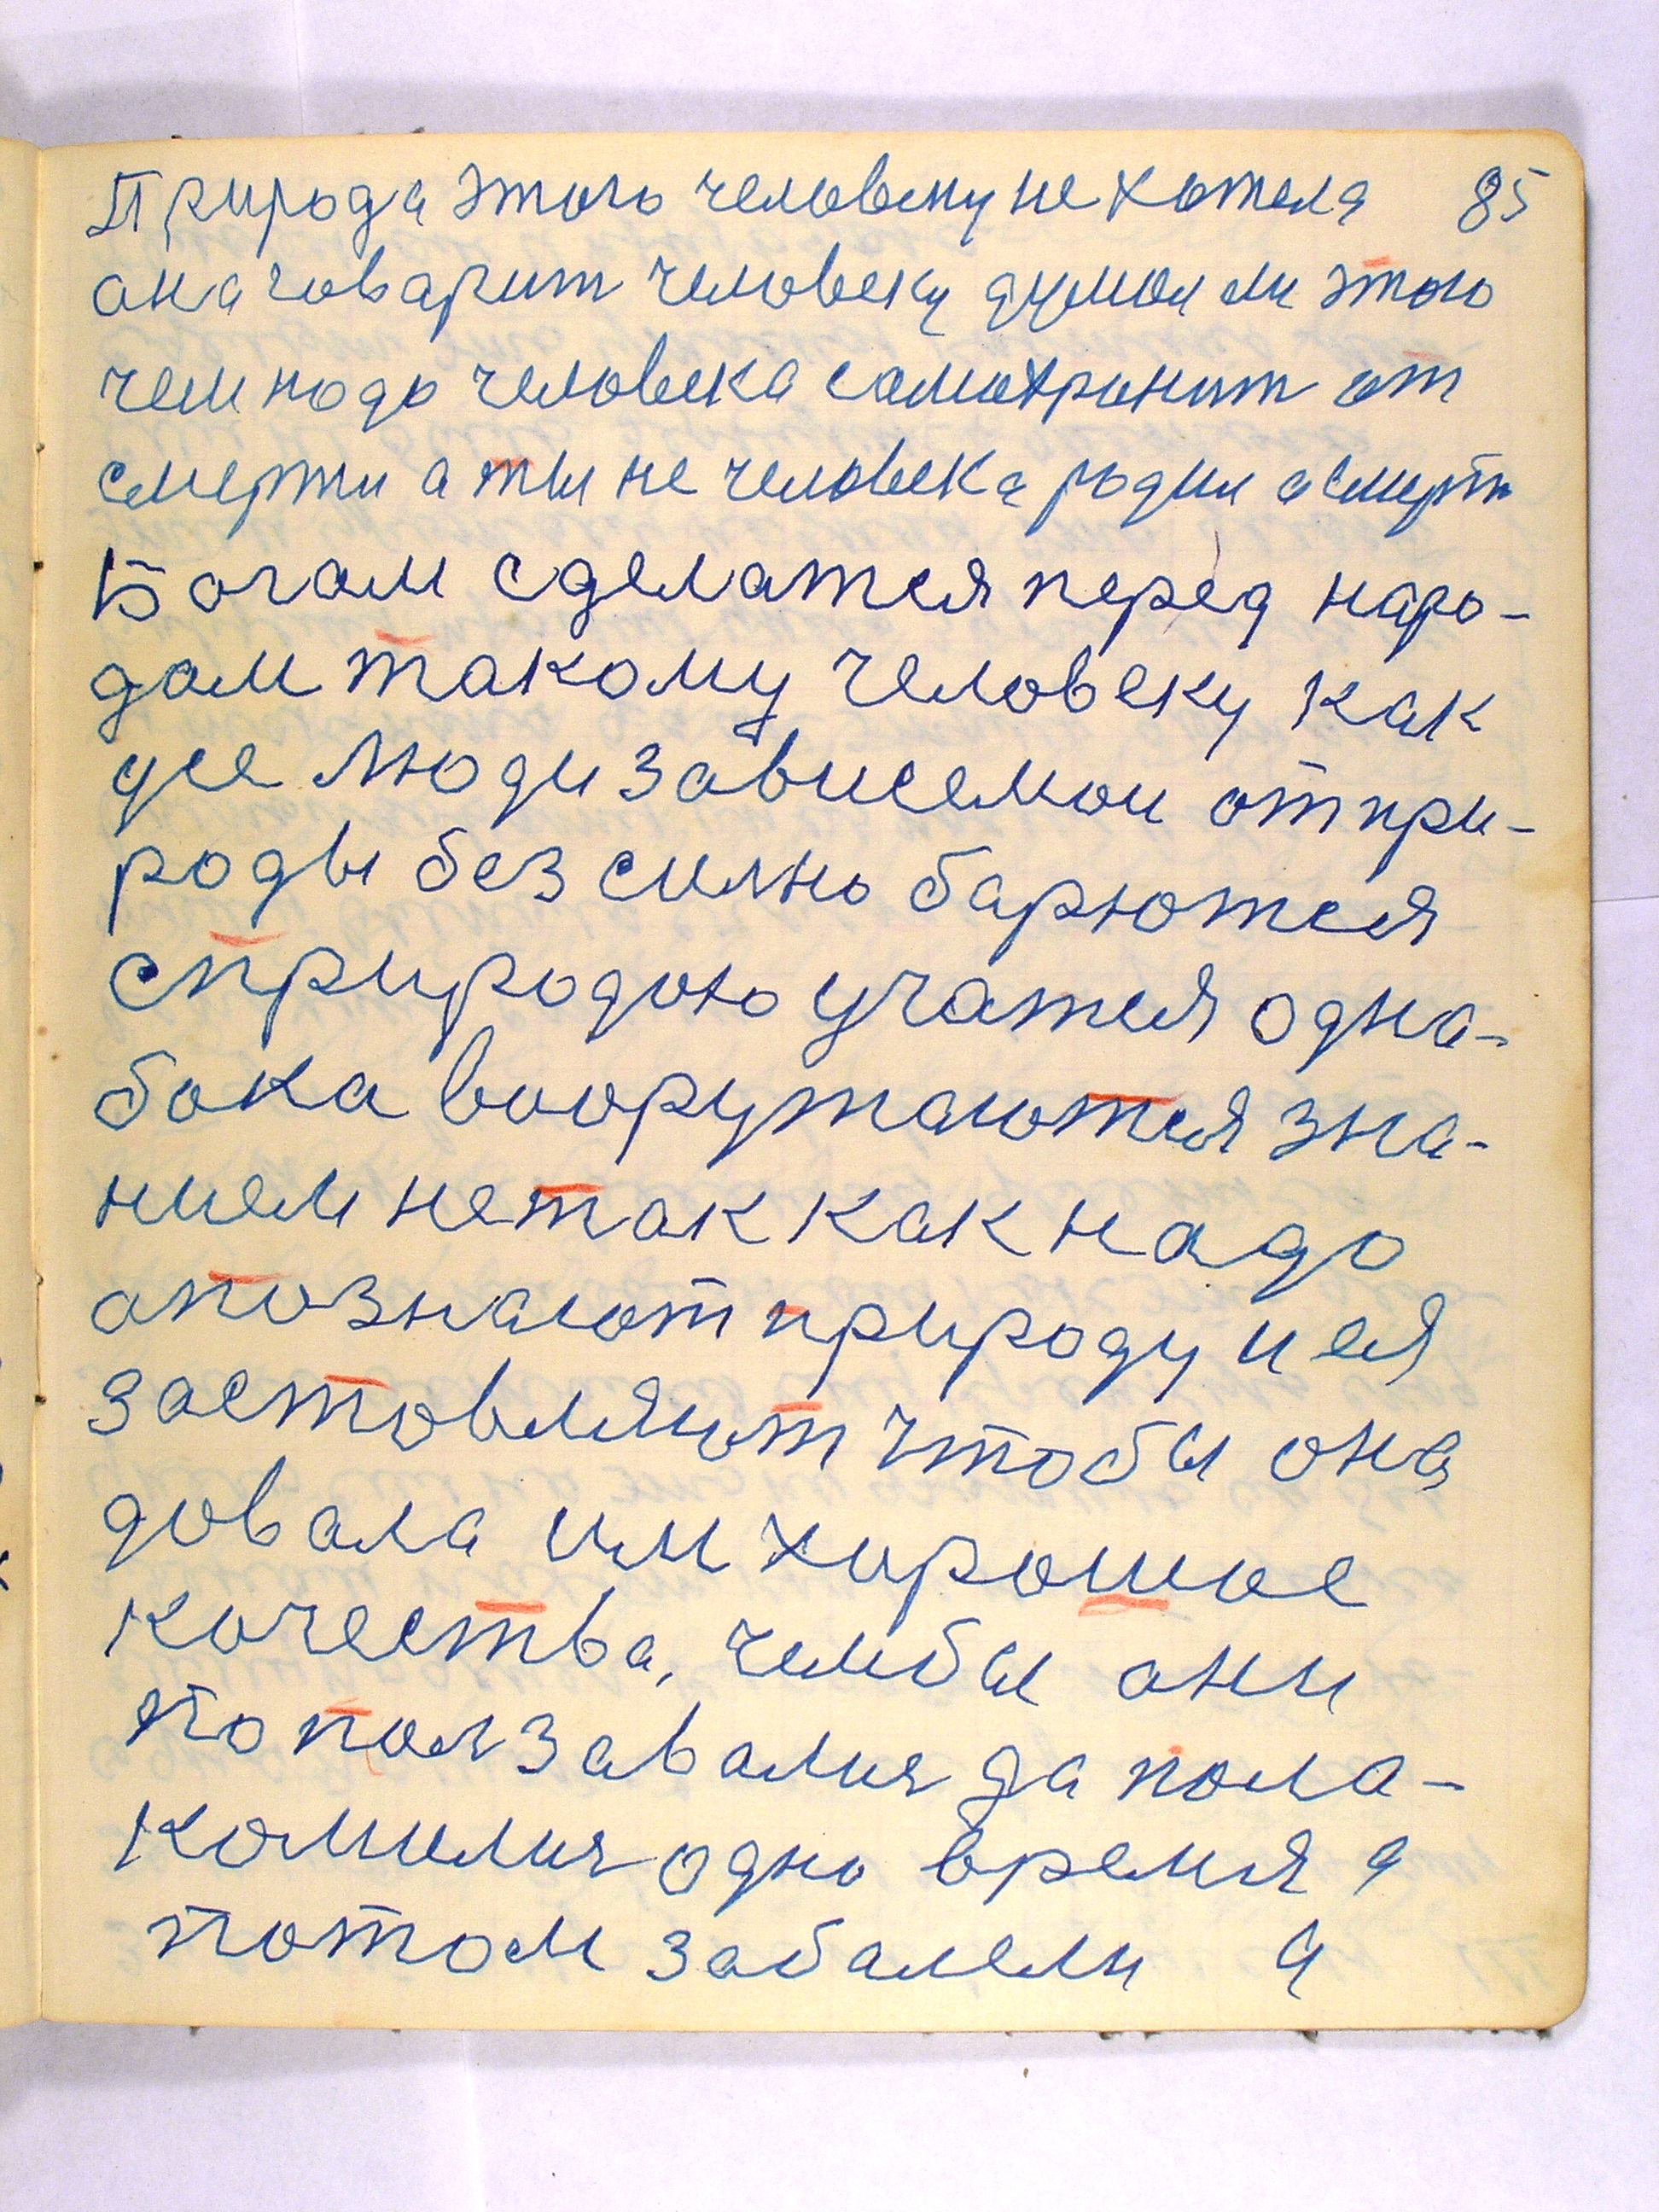 Природа этого человеку не хотела 85
она говарит человеку думол ли этого
чем нодо человека самохронит от
смерти а ты не человека родил а смерть
Богам сделатся перед наро-
дом такому человеку как
усе люди зависемои от при-
роды без силно барются
с природою учатся одна-
бока вооружаются зна-
нием не так как надо
а познают природу и ея
застовляют чтобы она
довала им хорошое
кочества, чем бы они
по ползавалис да пола-
комилис одно время а
потом забалели а